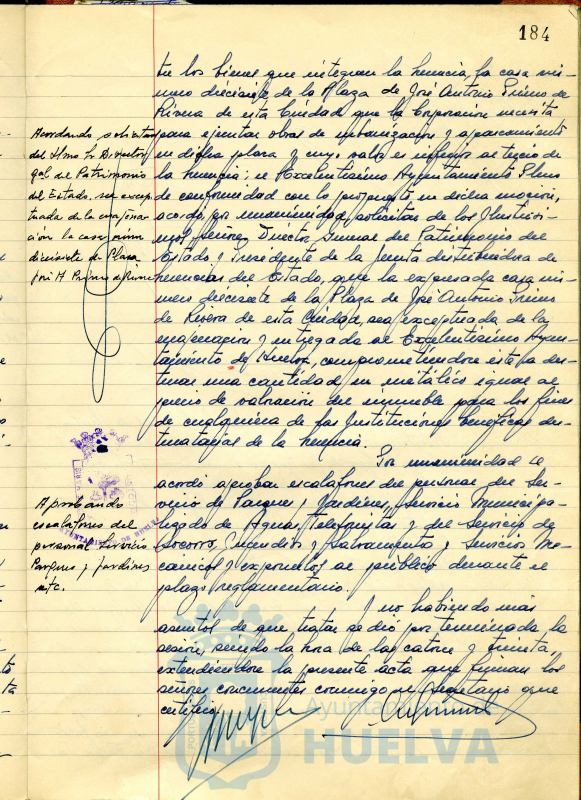 184
tre los bienes que integran la herencia, la casa nú-
mero diecisiete de la Plaza de José Antonio Primo de
Rivera de esta Ciudad que la Corporación necesita
para ejecutar obras de urbanización y aparcamiento
en dicha plaza y cuyo valor es inferior al tercio de
la herencia; el Excelentísimo Ayuntamiento Pleno
de conformidad con lo propuesto en dicha moción,
acordó por unanimidad solicitar de los Ilustrísi-
mos señores Director General del Patrimonio del
Estado y Presidente de la Junta distribuidora de
herencias del Estado, que la expresada casa nú-
mero diecisiete de la Plaza de José Antonio Primo
de Rivera de esta Ciudad, sea exceptuada de la
enajenación y entregada al Excelentísimo Ayun-
tamiento de Huelva, comprometiéndose este a des-
tinar una cantidad en metálico igual al
precio de valoración del inmueble para los fines
de cualquiera de las Instituciones benéficas des-
tinatarias de la herencia.
Acordando solicitar
del Ilmo Sr Director
gral de Patrimonio
del Estado, sea excep-
tuada de la enajena-
ción la casa núm
diecisiete de Plaza
José A Primo de Rivera
Por unanimidad se
acordó aprobar escalafones del personal del Ser-
vicio de Parques y Jardines, Servicio Municipa-
lizado de Aguas, Telefonistas y del Servicio de
Socorro, Incendios y Salvamento y Servicios Me-
cánicos y exponerlos al público durante el
plazo reglamentario.
Aprobando
escalafones del
personal Servicio
Parques y Jardines
etc.
Y no habiendo más
asuntos de que tratar se dió por terminada la
sesión, siendo la hora de las catorce y treinta,
extendiéndose la presente acta que firman los
señores concurrentes conmigo el Secretario que
certifico.
AYUNTAMIENTO DE HUELVA
Ayuntamiento
HUELVA